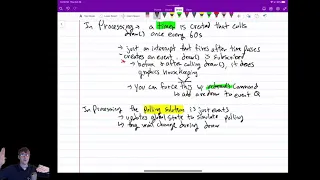 In Processing → a timer is created that calls
draw() once every 60s
→ just an interrupt that fires after time passes
creates an event. draw() is subscribed
→ before & after calling draw(), it does
graphics housekeeping
→ You can force this w/ redraw() command
→ add one draw to event Q
In Processing the Polling solution is just events
→ updates global state to simulate polling
→ may change during draw